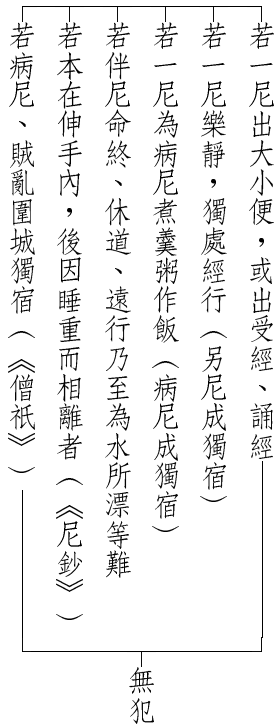 若一尼出大小便，或出受經、誦經
若一尼樂靜，獨處經行（另尼成獨宿）
若一尼為病尼煮羹粥作飯（病尼成獨宿）
若伴尼命終、休道、遠行乃至為水所漂等難
若本在伸手內，後因睡重而相離者（《尼鈔》）
若病尼、賊亂圍城獨宿（《僧祇》）
無犯